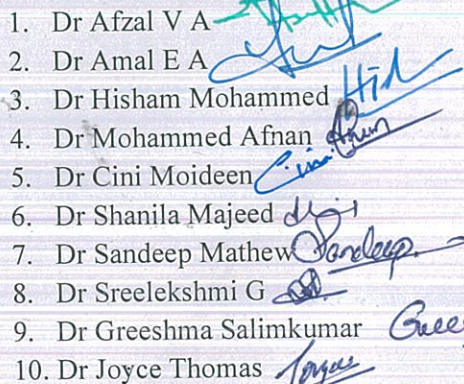 1. Dr Afzal V A
2. Dr Amal E A
3. Dr Hisham Mohammed
4. Dr Mohammed Afnan
5. Dr Cini Moideen Cini
6. Dr Shanila Majeed
7. Dr Sandeep Mathew Sandeep
8. Dr Sreelekshmi G
9. Dr Greeshma Salimkumar
10. Dr Joyce Thomas Joyce